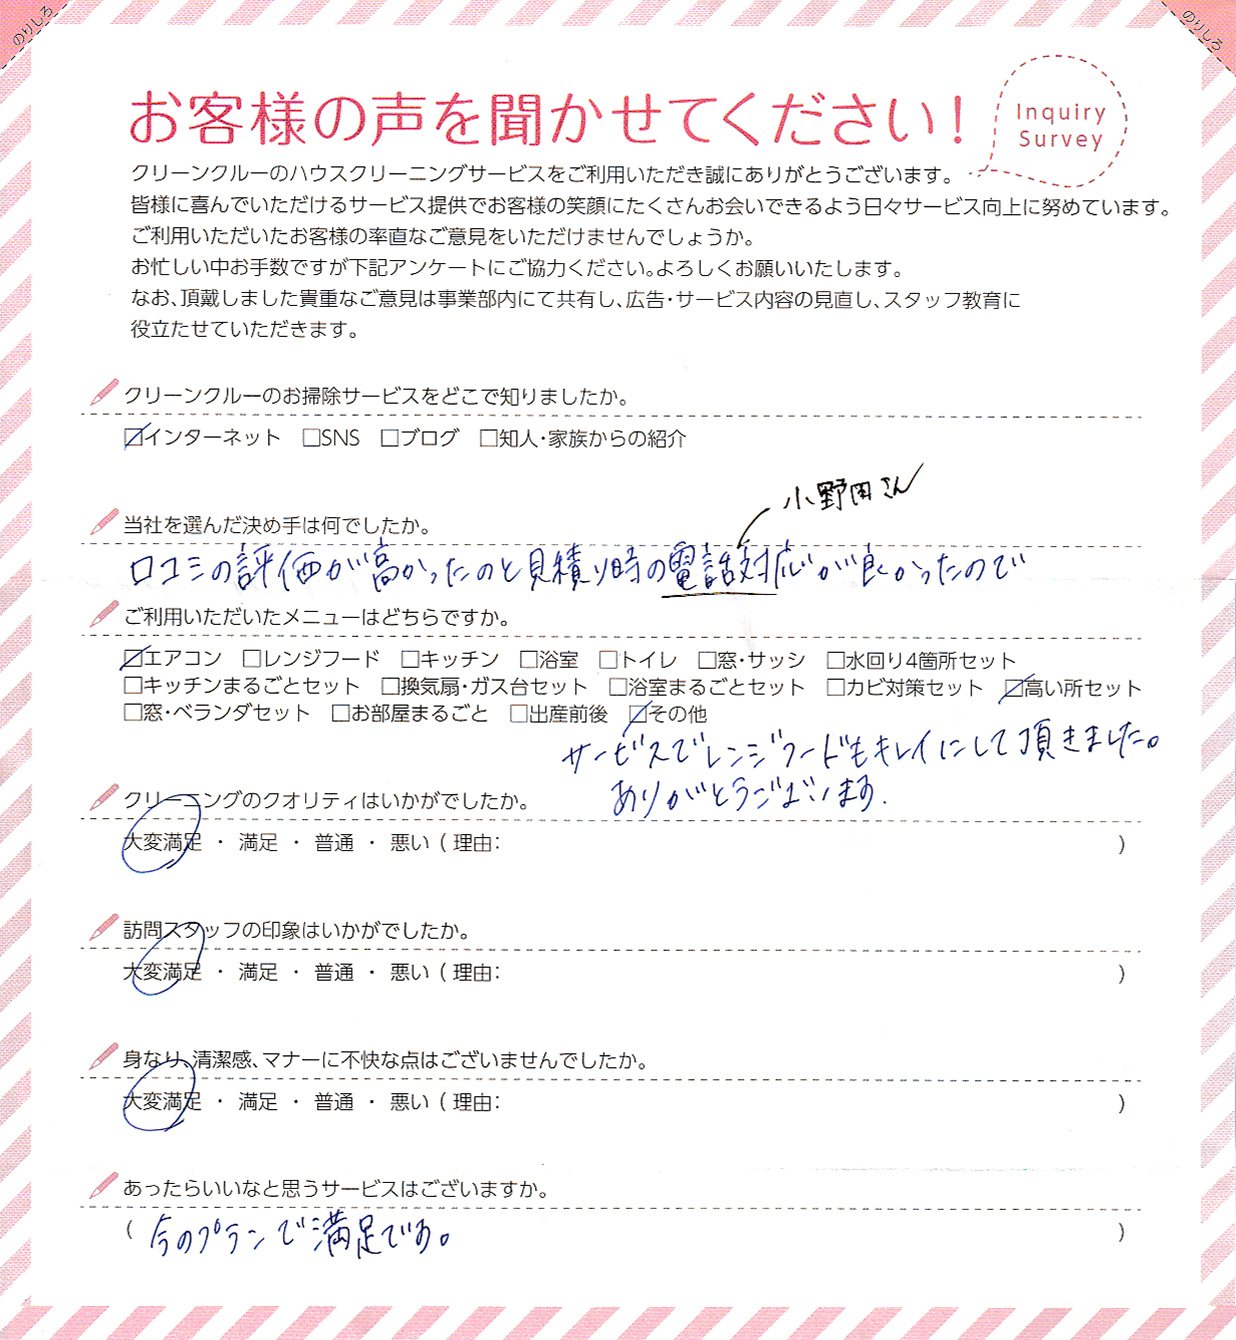 のりしろ
のりしろ
お客様の声を聞かせてください!
Inquiry
Survey
クリーンクルーのハウスクリーニングサービスをご利用いただき誠にありがとうございます。
皆様に喜んでいただけるサービス提供でお客様の笑顔にたくさんお会いできるよう日々サービス向上に努めています。
ご利用いただいたお客様の率直なご意見をいただけませんでしょうか。
お忙しい中お手数ですが下記アンケートにご協力ください。よろしくお願いいたします。
なお、頂戴しました貴重なご意見は事業部内にて共有し、広告・サービス内容の見直し、スタッフ教育に
役立たせていただきます。
クリーンクルーのお掃除サービスをどこで知りましたか。
☑インターネット □SNS □ブログ □知人・家族からの紹介
小野田さん
当社を選んだ決め手は何でしたか。
口コミの評価が高かったのと見積り時の電話対応が良かったので
ご利用いただいたメニューはどちらですか。
☑エアコン □レンジフード □キッチン □浴室 □トイレ □窓・サッシ □水回り4箇所セット
□キッチンまるごとセット □換気扇・ガス台セット □浴室まるごとセット □カビ対策セット ☑高い所セット
□窓・ベランダセット □お部屋まるごと □出産前後 ☑その他
サービスでレンジフードもキレイにして頂きました。
ありがとうございます.
クリーニングのクオリティはいかがでしたか。
大変満足 ・ 満足 ・ 普通 ・ 悪い ( 理由: )
訪問スタッフの印象はいかがでしたか。
大変満足 ・ 満足 ・ 普通 ・ 悪い ( 理由: )
身なり、清潔感、マナーに不快な点はございませんでしたか。
大変満足 ・ 満足 ・ 普通 ・ 悪い ( 理由: )
あったらいいなと思うサービスはございますか。
( 今のプランで満足です。 )